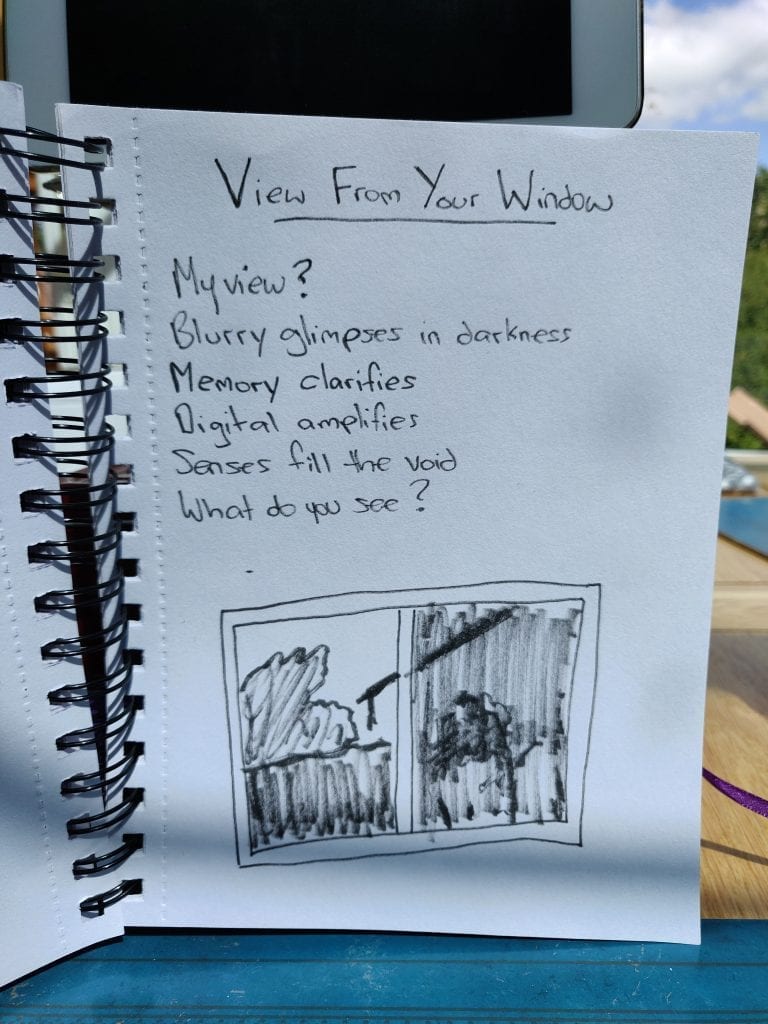 View From Your Window
My view?
Blurry glimpses in darkness
Memory clarifies
Digital amplifies
Senses fill the void
What do you see?